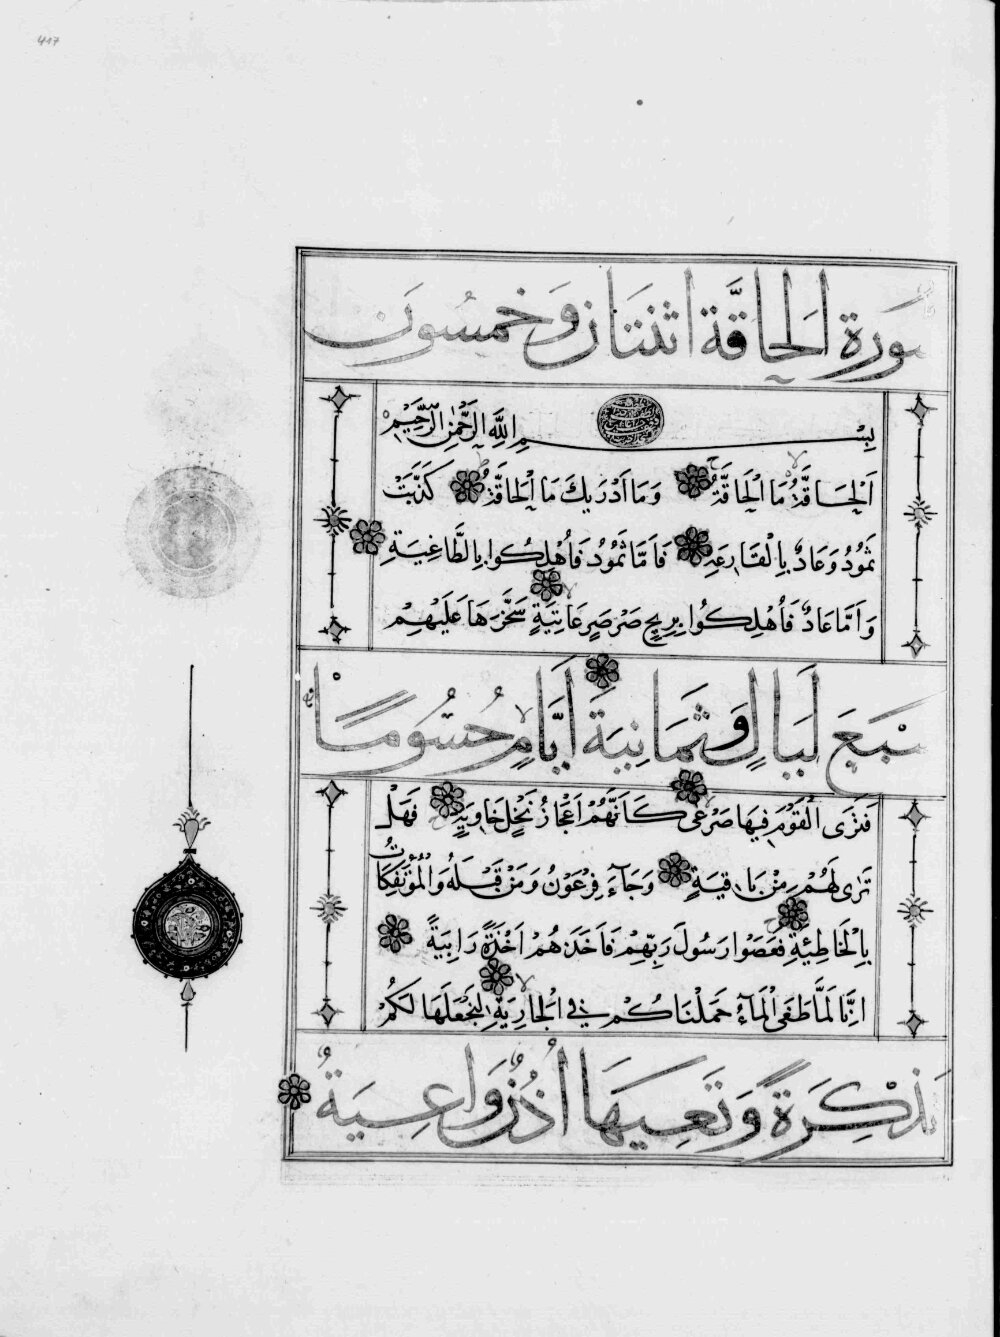 417
سورة الحاقة اثنتان وخمسون
بِسْمِ اللَّهِ الرَّحْمٰنِ الرَّحِيمِ
اَلْحَاقَّةُ مَا الْحَاقَّةُ وَمَا اَدْرٰيكَ مَا الْحَاقَّةُ كَذَّبَتْ
ثَمُودُ وَعَادٌ بِالْقَارِعَةِ فَاَمَّا ثَمُودُ فَاُهْلِكُوا بِالطَّاغِيَةِ
وَاَمَّا عَادٌ فَاُهْلِكُوا بِرِيحٍ صَرْصَرٍ عَاتِيَةٍ سَخَّرَهَا عَلَيْهِمْ
سَبْعَ لَيَالٍ وَثَمَانِيَةَ اَيَّامٍ حُسُومًا
فَتَرَى الْقَوْمَ فِيهَا صَرْعٰى كَاَنَّهُمْ اَعْجَازُ نَخْلٍ خَاوِيَةٍ فَهَلْ
تَرٰى لَهُمْ مِنْ بَاقِيَةٍ وَجَاۤءَ فِرْعَوْنُ وَمَنْ قَبْلَهُ وَالْمُؤْتَفِكَاتُ
بِالْخَاطِئَةِ فَعَصَوْا رَسُولَ رَبِّهِمْ فَاَخَذَهُمْ اَخْذَةً رَابِيَةً
اِنَّا لَمَّا طَغَى الْمَاۤءُ حَمَلْنَاكُمْ فِي الْجَارِيَةِ لِنَجْعَلَهَا لَكُمْ
تَذْكِرَةً وَتَعِيَهَا اُذُنٌ وَاعِيَةٌ